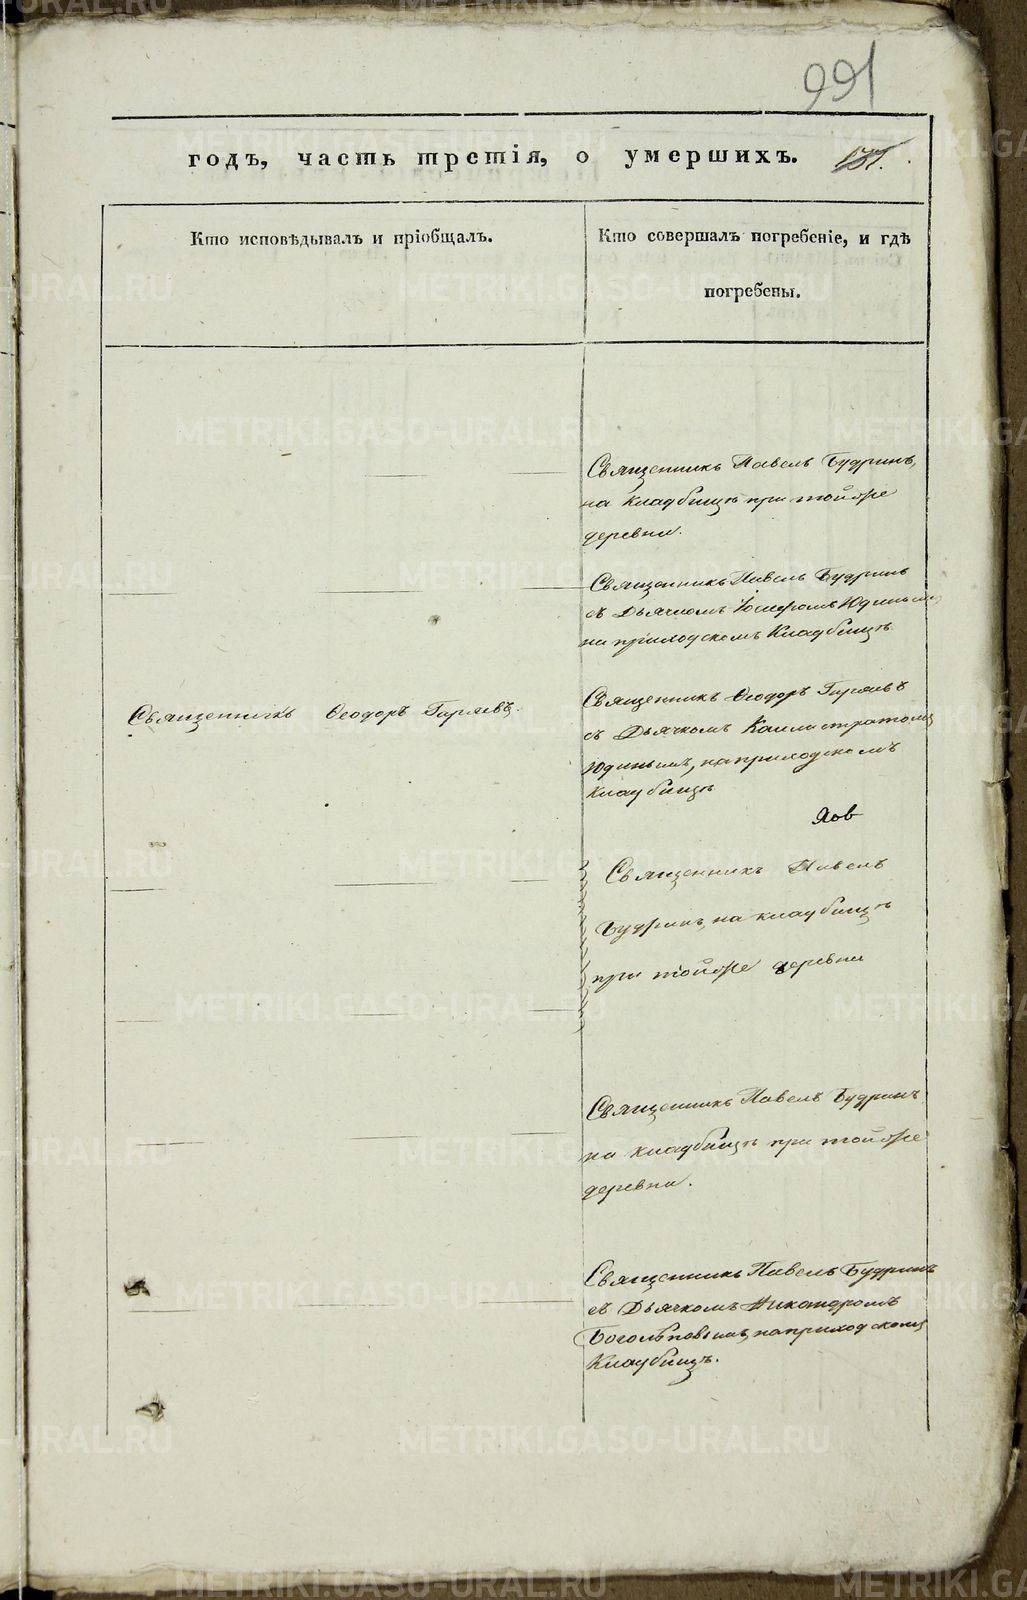 991
годъ, часть третія, о умершихъ.
Кто исповѣдывалъ и пріобщалъ.
Кто совершалъ погребеніе, и гдѣ
погребены.
Священникъ Павелъ Будринъ,
на кладбищѣ при той же
деревни.
Священникъ Павелъ Будринъ
съ Дьячкомъ Юдинымъ
на приходскомъ Кладбищѣ
Священникъ Ѳеодоръ Гаряевъ.
Священникъ Ѳеодоръ Гаряевъ
съ Дьячкомъ Каллистратомъ
Юдинымъ, на приходскомъ
Кладбищѣ
Священникъ Павелъ
Будринъ, на кладбищѣ
при той же деревни
Священникъ Павелъ Будринъ
на кладбищѣ при той же
деревни.
Священникъ Павелъ Будринъ
съ Дьячкомъ Никаноромъ
Боголѣповымъ, на приходскомъ
Кладбищѣ.
METRIKI.GASO-URAL.RU